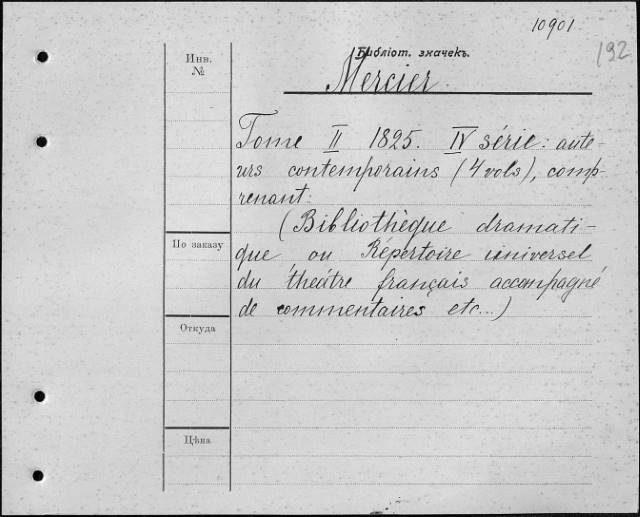 10901
192
Библіот. значекъ.
Mercier.
Инв.
№
Tome II 1825. IV série: aute-
urs contemporains (4 vols), comp-
renant:
(Bibliothèque dramati-
По заказу
que ou Répertoire universel
du théâtre français accompagné
de commentaires etc...)
Откуда
Цѣна